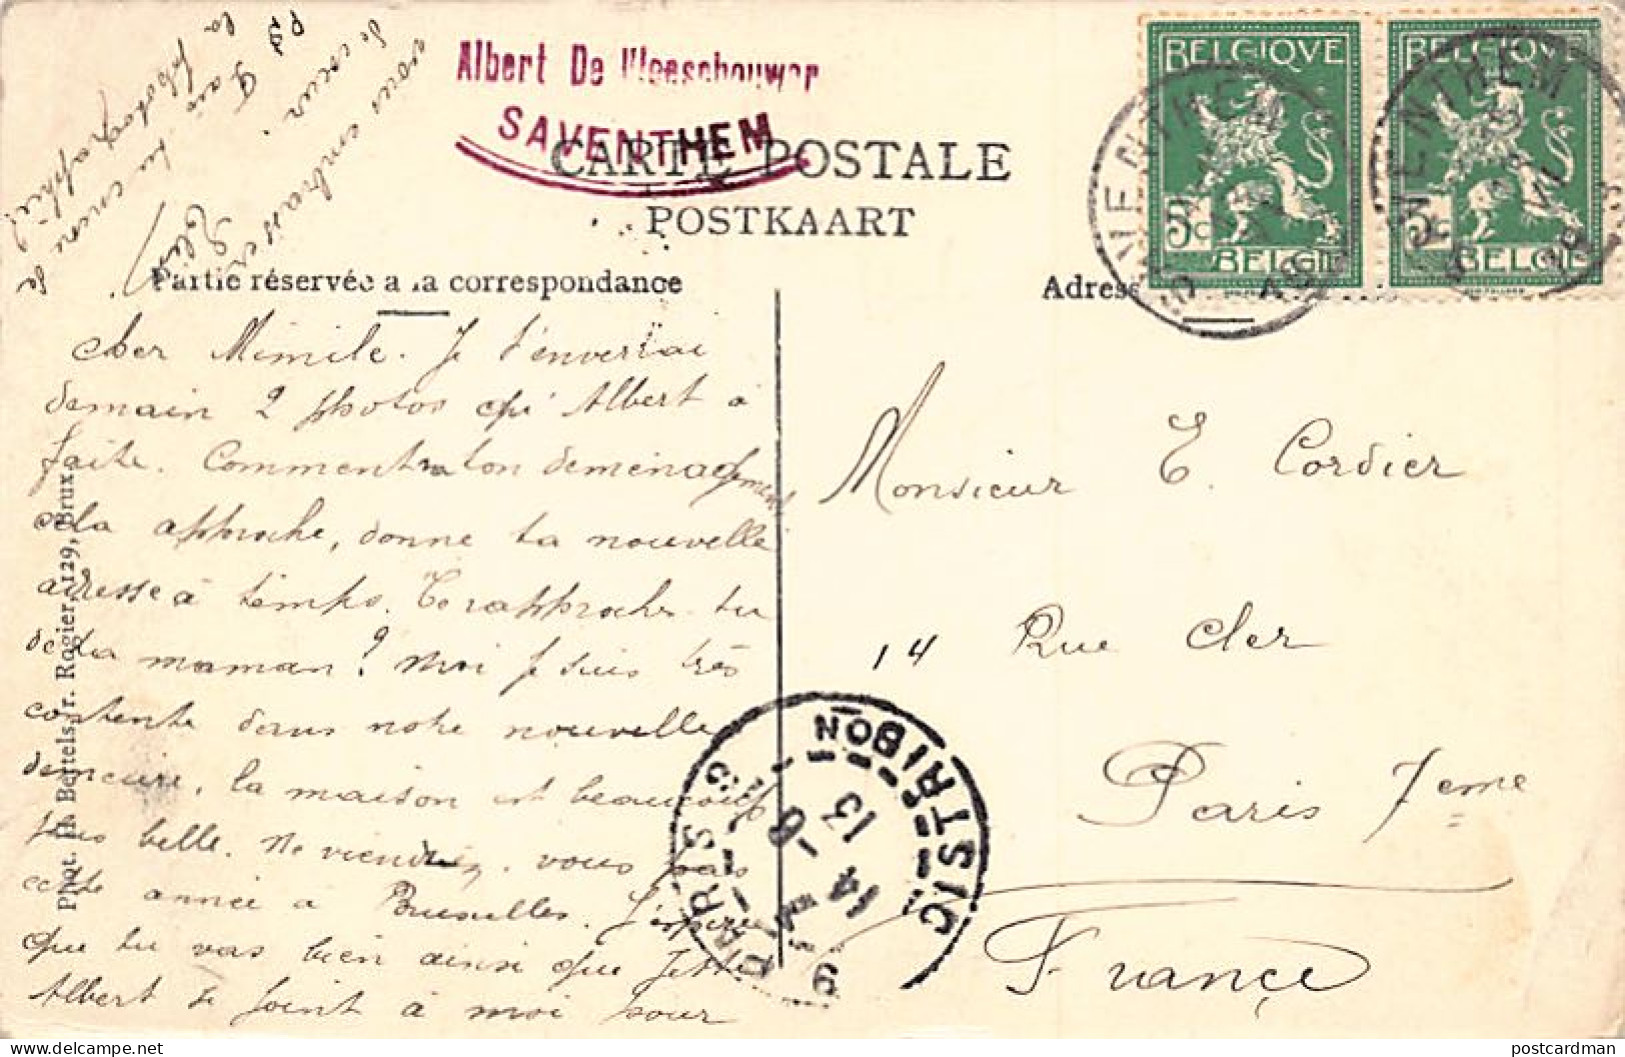 Albert De Vleeschouwer
SAVENTHEM
CARTE POSTALE
POSTKAART
Partie réservée a la correspondance
Adresse
BELGIQVE
5c
BELGIË
BELGIQVE
5c
BELGIË
cher Mimile. Je t'enverrai
demain 2 photos qu'Albert a
faite. Comment va ton déménagement
cela approche, donne ta nouvelle
adresse à temps. Te rapproches tu
de ta maman? Moi je suis très
contente dans notre nouvelle
demeure, la maison est beaucoup
plus belle. Ne viendrez vous pas
cette année a Bruxelles. J'espère
que tu vas bien ainsi que
Albert se joint à moi pour
vous embrasser
de cœur.
PS Fais tu encore de
la photographie?
Monsieur E. Cordier
14 Rue Cler
Paris 7eme
France
PARIS
DISTRIBUTION
14 - 8
13
Phot. H. Bertels, r. Rogier, 129, Brux.
postcardman
https://www.delcampe.net